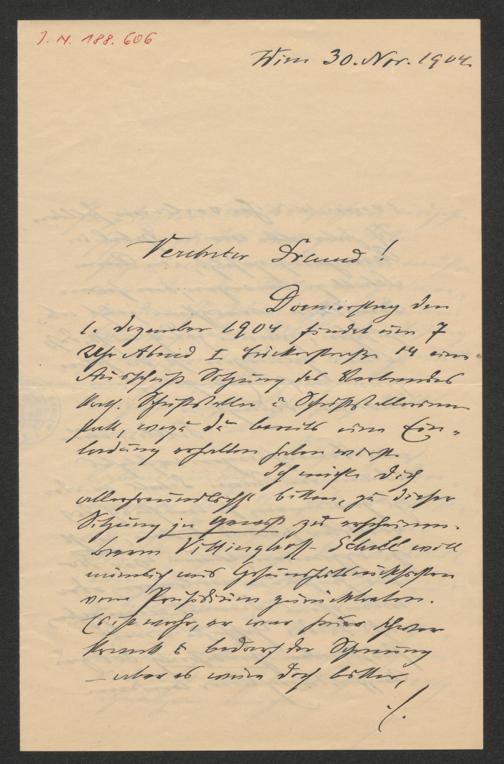 J. N. 188.606
Wien 30. Nov. 1904.
Verehrter Freund!
Donnerstag den
1. Dezember 1904 findet um 7
Uhr Abend I. Bäckerstraße 14 eine
Ausschuß Sitzung des Verbandes
kath. Schriftsteller & Schriftstellerinnen
statt, wozu Du bereits eine Ein-
ladung erhalten haben wirst.
Ich möchte Dich
allerfreundlichst bitten, zu dieser
Sitzung ja gewiß zu erscheinen.
Baron Vittinghoff-Schell will
nämlich aus Gesundheitsrücksichten
vom Präsidium zurücktreten.
Es ist wahr, er war heuer schwer
krank & bedarf der Schonung
– aber es wäre doch bitter,
./.